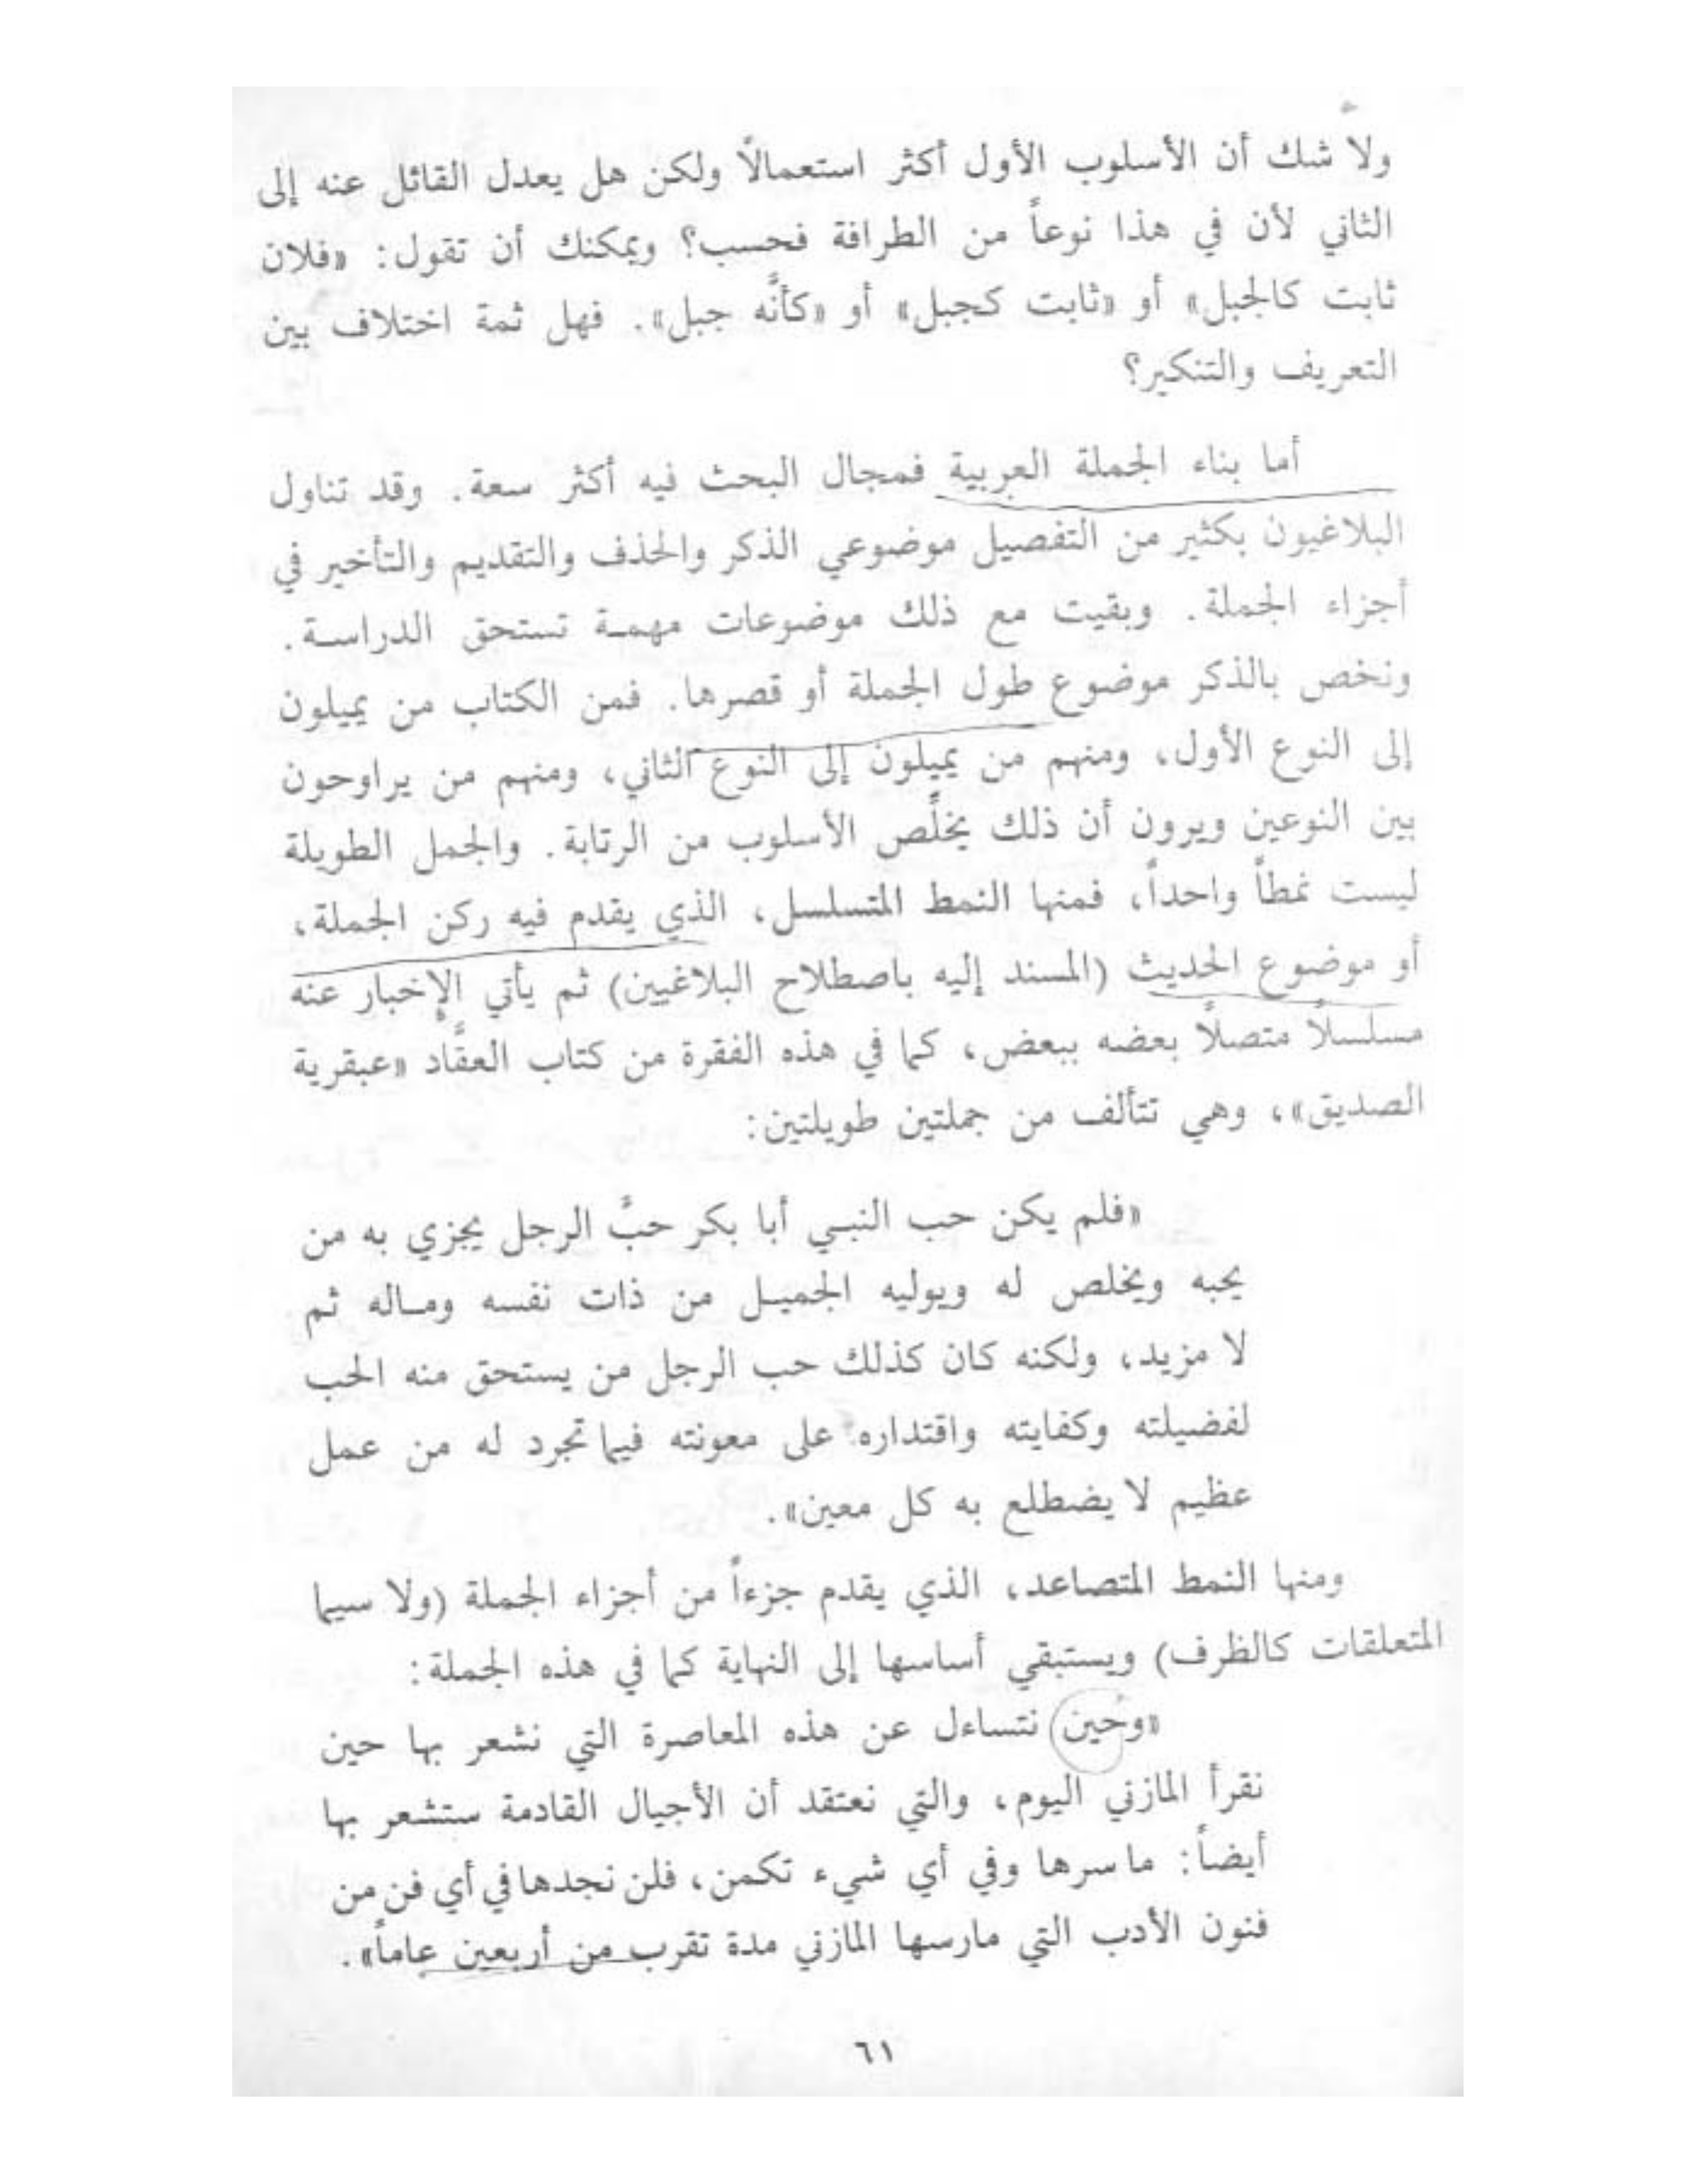 ولا شك أن الأسلوب الأول أكثر استعمالاً ولكن هل يعدل القائل عنه إلى
الثاني لأن في هذا نوعاً من الطرافة فحسب؟ ويمكنك أن تقول: «فلان
ثابت كالجبل» أو «ثابت كجبل» أو «كأنَّه جبل». فهل ثمة اختلاف بين
التعريف والتنكير؟
أما بناء الجملة العربية فمجال البحث فيه أكثر سعة. وقد تناول
البلاغيون بكثير من التفصيل موضوعي الذكر والحذف والتقديم والتأخير في
أجزاء الجملة. وبقيت مع ذلك موضوعات مهمة تستحق الدراسة.
ونخص بالذكر موضوع طول الجملة أو قصرها. فمن الكتاب من يميلون
إلى النوع الأول، ومنهم من يميلون إلى النوع الثاني، ومنهم من يراوحون
بين النوعين ويرون أن ذلك يخلِّص الأسلوب من الرتابة. والجمل الطويلة
ليست نمطاً واحداً، فمنها النمط المتسلسل، الذي يقدم فيه ركن الجملة،
أو موضوع الحديث (المسند إليه باصطلاح البلاغيين) ثم يأتي الإخبار عنه
مسلسلاً متصلاً بعضه ببعض، كما في هذه الفقرة من كتاب العقَّاد «عبقرية
الصديق»، وهي تتألف من جملتين طويلتين:
«فلم يكن حب النبي أبا بكر حبَّ الرجل يجزي به من
يحبه ويخلص له ويوليه الجميل من ذات نفسه وماله ثم
لا مزيد، ولكنه كان كذلك حب الرجل من يستحق منه الحب
لفضيلته وكفايته واقتداره على معونته فيما تجرد له من عمل
عظيم لا يضطلع به كل معين».
ومنها النمط المتصاعد، الذي يقدم جزءاً من أجزاء الجملة (ولا سيما
المتعلقات كالظرف) ويستبقي أساسها إلى النهاية كما في هذه الجملة:
«وحين نتساءل عن هذه المعاصرة التي نشعر بها حين
نقرأ المازني اليوم، والتي نعتقد أن الأجيال القادمة ستشعر بها
أيضاً: ما سرها وفي أي شيء تكمن، فلن نجدها في أي فن من
فنون الأدب التي مارسها المازني مدة تقرب من أربعين عاماً».
٦١